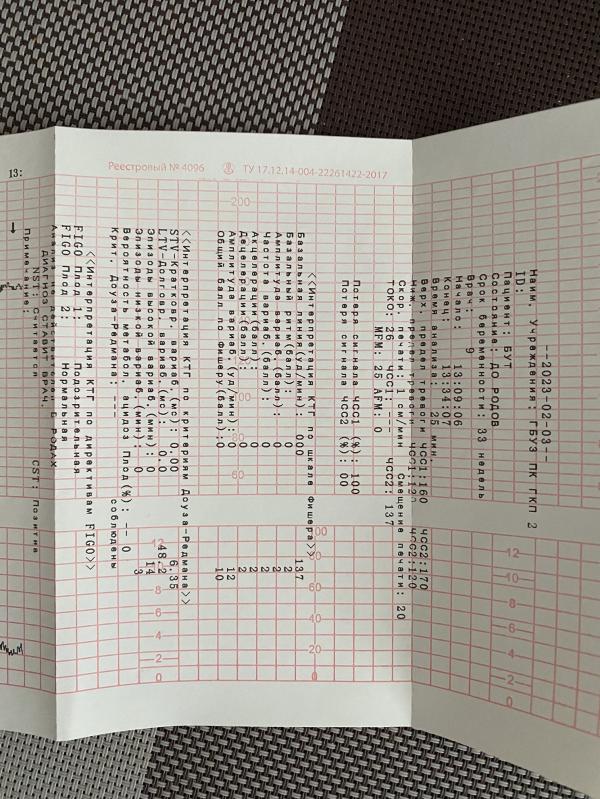 Реестровый № 4096 ТУ 17.12.14-004-22261422-2017
13:
--2023-02-03--
Наим. Учреждения: ГБУЗ ПК ГКП 2
ID:
Пациент: БУТ
Состояние: ДО РОДОВ
Срок беременности: 33 недель
Врач: 9
Начало: 13:09:06
Конец: 13:34:07
Время анализа: 25 мин.
Верх. предел тревоги ЧСС1:160 ЧСС2:170
Ниж. предел тревоги ЧСС1:120 ЧСС2:120
Скор. печати: 1 см/мин Смещение печати: 20
ТОКО: 26 ЧСС1:--- ЧСС2: 137
МPM: 25 AFM: 0
Потеря сигнала ЧСС1 (%): 100
Потеря сигнала ЧСС2 (%): 00
<<Интерпретация КТГ по шкале Фишера>>
Базальная линия(уд/мин): 000 137
Базальный ритм(балл): 0 2
Амплитуда вариаб.(балл): 0 2
Частота вариаб.(балл): 0 2
Акцелерации(балл): 0 2
Децелерации(балл): 0 2
Амплитуда вариаб.(уд/мин): 0 12
Общий балл по Фишеру(балл):0 10
<<Интерпретация КТГ по критериям Доуза-Редмана>>
STV-Кратковр. вариаб.(мс): 0.00 6.35
LTV-Долговр. вариаб.(мс): 0.0 48.2
Эпизоды высокой вариаб.(мин): 0 14
Эпизоды низкой вариаб.(мин): 0 3
Вероятность метабол. ацидоз Плод(%): -- 0
Крит. Доуза-Редмана: --- соблюдены
<<Интерпретация КТГ по директивам FIGO>>
FIGO Плод 1: Подозрительная
FIGO Плод 2: Нормальная
Анализ не действителен В РОДАХ
ДИАГНОЗ СТАВИТ ВРАЧ.
NST: Считается CST: Позитив
Примечание:
200
100
80
60
12
8
6
4
2
0
00
80
60
40
20
0
12
10
8
6
4
2
0